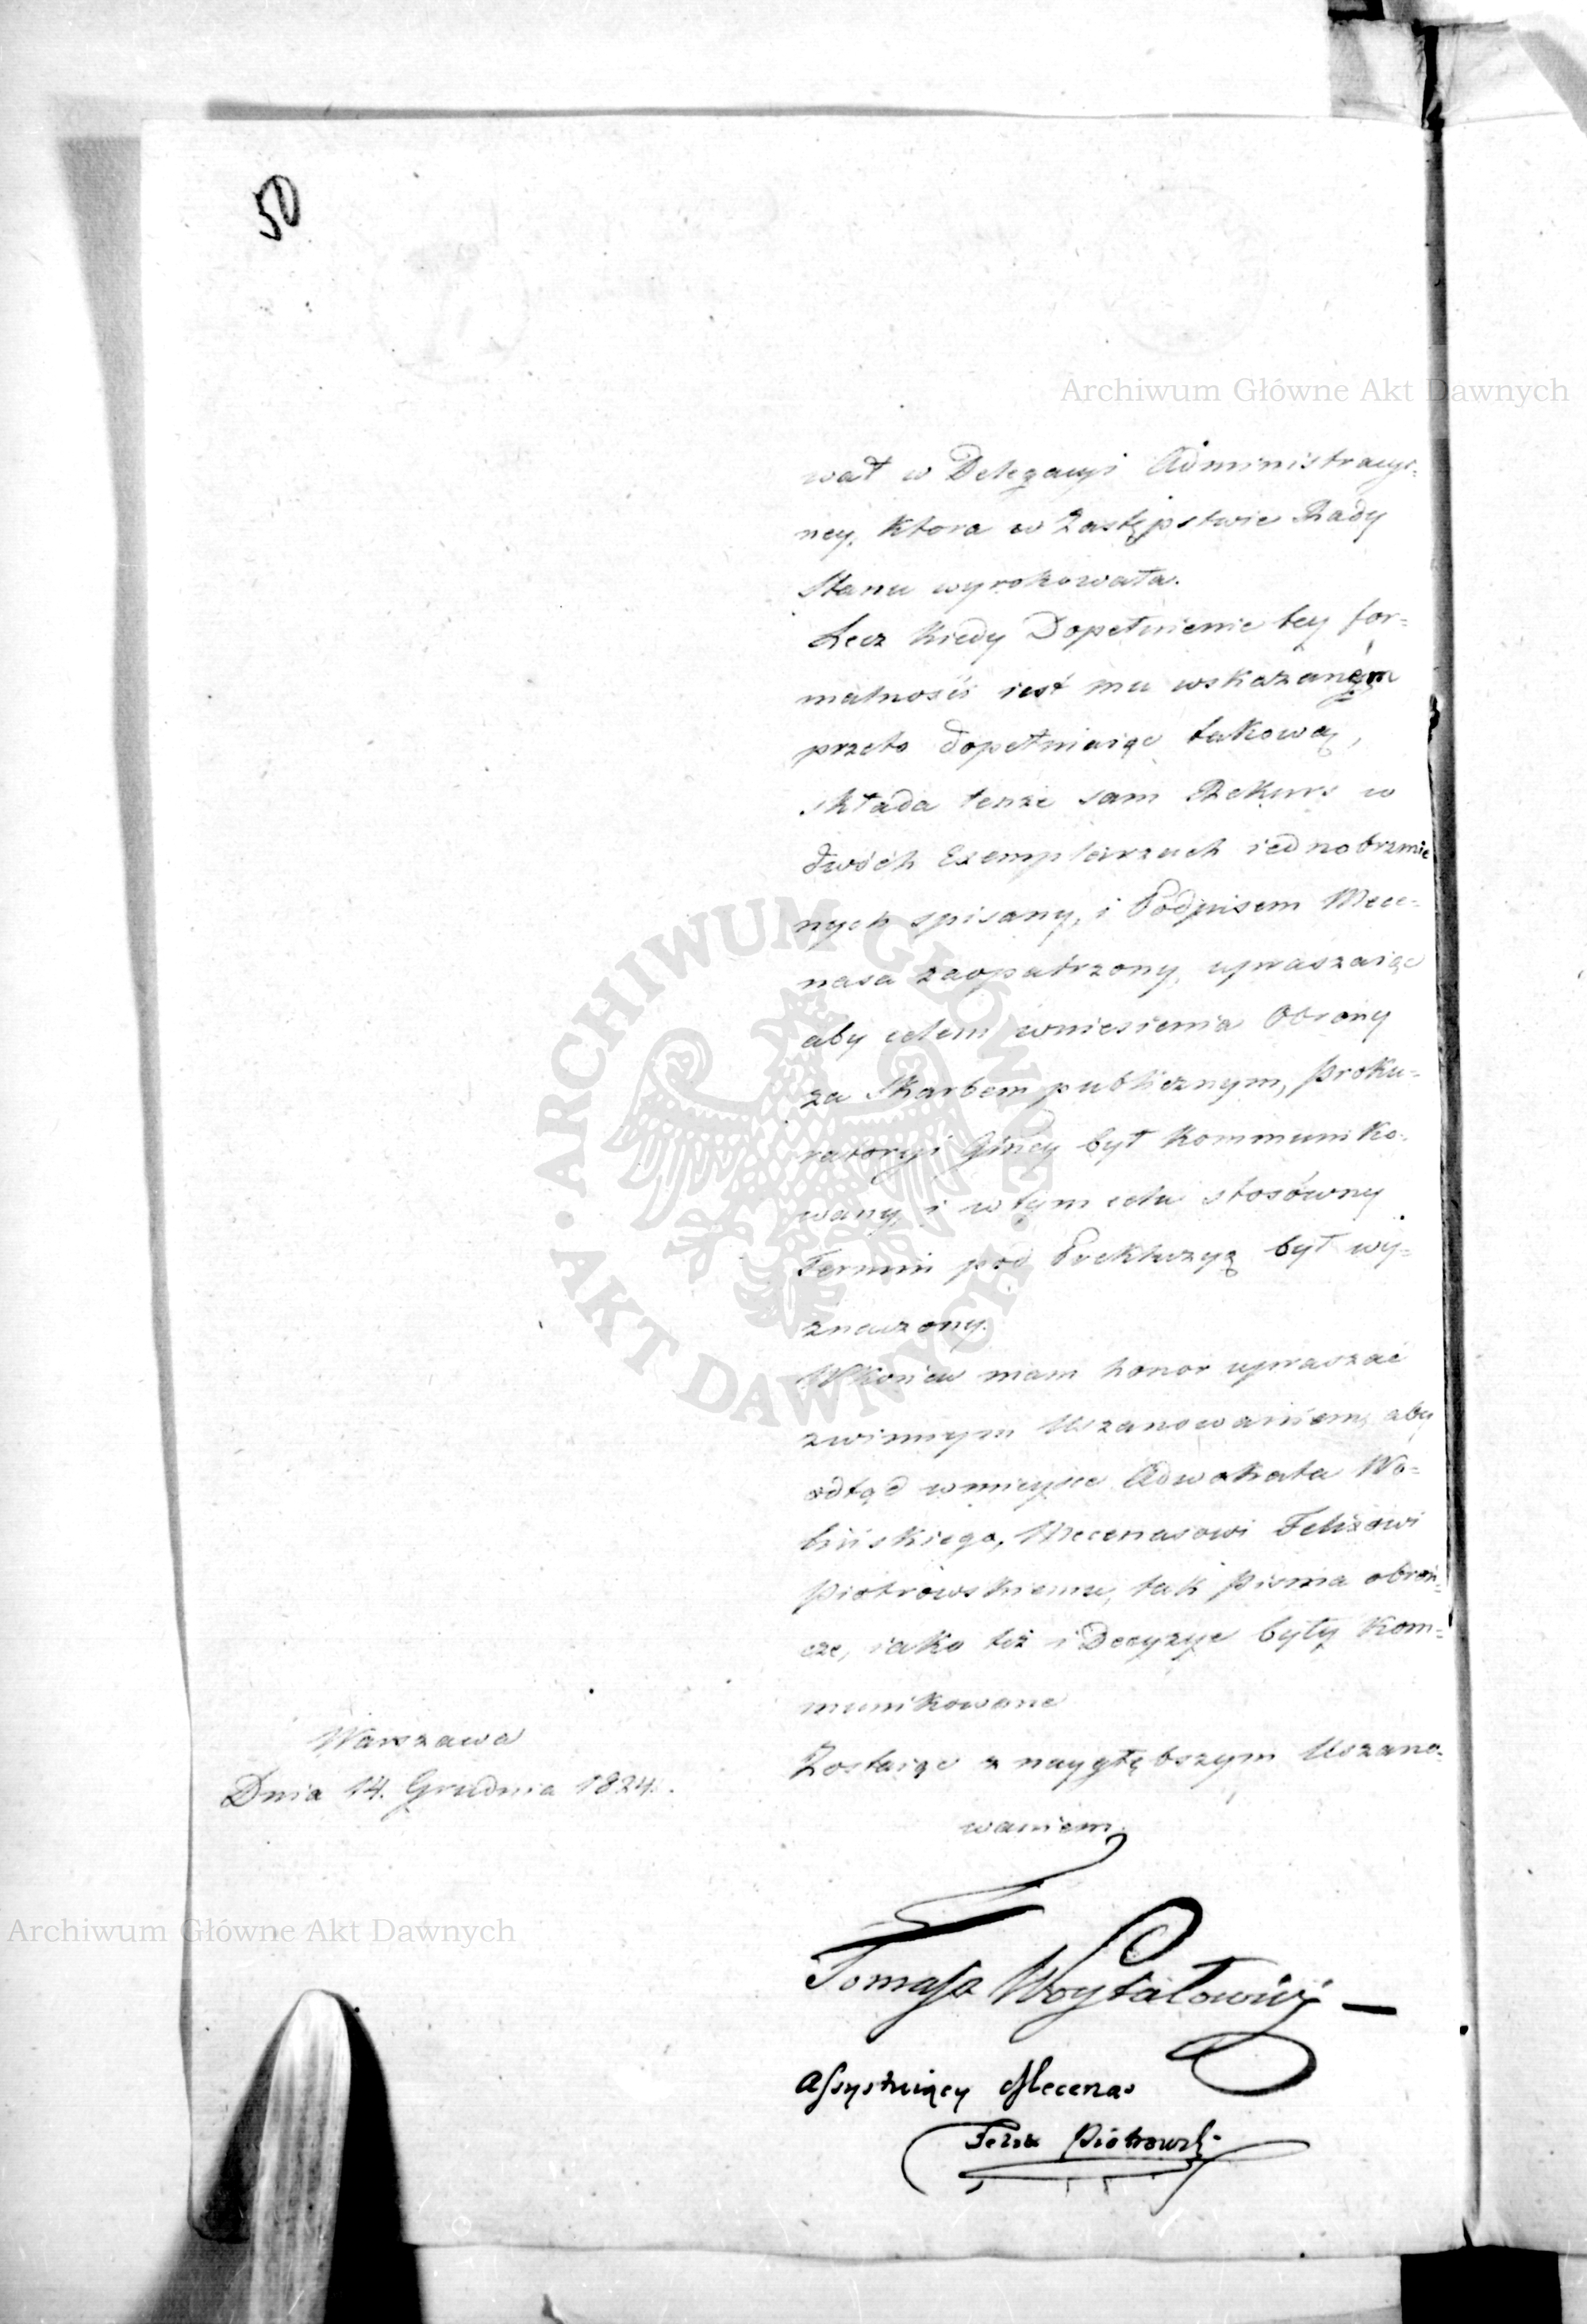 50
Archiwum Główne Akt Dawnych
wał w Delegacyi Administracyi=
ney, Ktora w Zastępstwie Rady
Stanu wyrokowała.
Lecz Kiedy Dopełnienie tey for=
malności iest mu wskazaném
przeto dopełniaiąc takową,
składa tenże sam Rekurs w
dwóch Exemplarzach iednobrzmie
nych spisany, i Podpisem Mece=
nasa zaopatrzony, upraszaiąc
aby celem wniesienia Obrony
za Skarbem publicznym, Proku=
ratoryi Głney był Kommuniko=
wany, i w tym celu stosówny
Termin pod Prekluzyą był wy=
znaczony.
W Końcu mam honor upraszać
z winnym Uszanowaniem, aby
odtąd w mieysce Adwokata Wo=
lińskiego, Mecenasowi Felixowi
Piotrowskiemu, tak Pisma obroń=
cze, iako też i Decyzye były Kom=
munikowane
Zostaiąc z naygłębszym Uszano=
waniem.
Warszawa
Dnia 14. Grudnia 1824.
Archiwum Główne Akt Dawnych
Tomasz
Assystuiący Mecenas
Felix Piotrowski
ARCHIWUM GŁÓWNE · AKT DAWNYCH ·